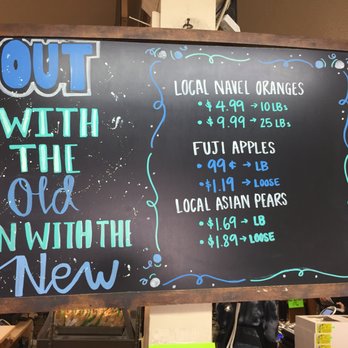 OUT
WITH
THE
Old
N WITH THE
New
LOCAL NAVEL ORANGES
• $4.99 → 10 LBs
• $9.99 → 25 LBs
FUJI APPLES
• 99¢ → LB
• $1.19 → LOOSE
LOCAL ASIAN PEARS
• $1.69 → LB
• $1.89 → LOOSE